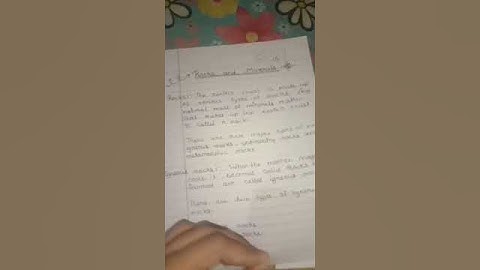 Rocks and Minerals
Rocks: The earth's crust is made up
of various types of rocks. Any
natural mass of minerals matter
that makes up the earth's crust
is called a rock.
There are three major types of
igneous rocks, sedimentary rocks and
metamorphic rocks.
Igneous rocks: When the molten
cools it becomes solid. Rocks
formed are called igneous
There are two types of igneous
rocks.
rocks
rocks